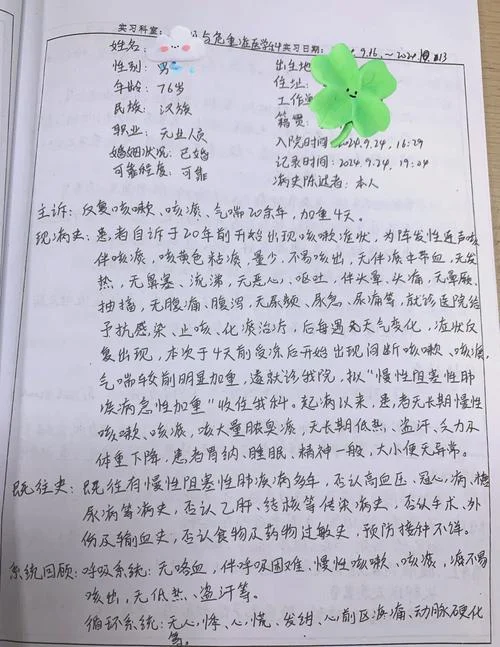 实习科室: 与危重症医学科 实习日期: 9.16.~2024.10.13
姓名: 出生地
性别: 男 住址:
年龄: 76岁 工作单
民族: 汉族 籍贯
职业: 无业人员 入院时间: 2024.9.24, 16:29
婚姻状况: 已婚 记录时间: 2024.9.24, 19:04
可靠程度: 可靠 病史陈述者: 本人
主诉: 反复咳嗽、咳痰、气喘20余年, 加重4天。
现病史: 患者自诉于20年前开始出现咳嗽症状, 为阵发性连声咳
伴咳痰, 咳黄色粘痰, 量少, 不易咳出, 无伴痰中带血, 无发
热, 无鼻塞、流涕, 无恶心、呕吐, 伴头晕、头痛, 无晕厥、
抽搐, 无腹痛、腹泻, 无尿频、尿急、尿痛等, 就诊医院给
予抗感染、止咳、化痰治疗, 后每遇天气变化, 症状反
复出现, 本次于4天前受凉后开始出现间断咳嗽、咳痰,
气喘较前明显加重, 遂就诊我院, 拟"慢性阻塞性肺
疾病急性加重"收住我科。起病以来, 患者无长期慢性
咳嗽、咳痰, 咳大量脓臭痰, 无长期低热、盗汗、乏力及
体重下降, 患者胃纳、睡眠、精神一般, 大小便无异常。
既往史: 既往有慢性阻塞性肺疾病多年, 否认高血压、冠心病、糖
尿病等病史, 否认乙肝、结核等传染病史, 否认手术、外
伤及输血史, 否认食物及药物过敏史, 预防接种不详。
系统回顾: 呼吸系统: 无咯血, 伴呼吸困难、慢性咳嗽、咳痰, 痰不易
咳出, 无低热、盗汗等。
循环系统: 无心悸、心慌、发绀、心前区疼痛、动脉硬化
等。